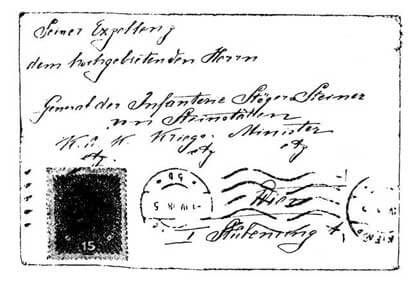 Seiner Exzellenz
dem hochgebietenden Herrn
General der Infanterie Stöger-Steiner
von Steinstätten
K. u. K. Kriegs-Minister
etz. etz. etz.
15
Wien
I Stubenring 1